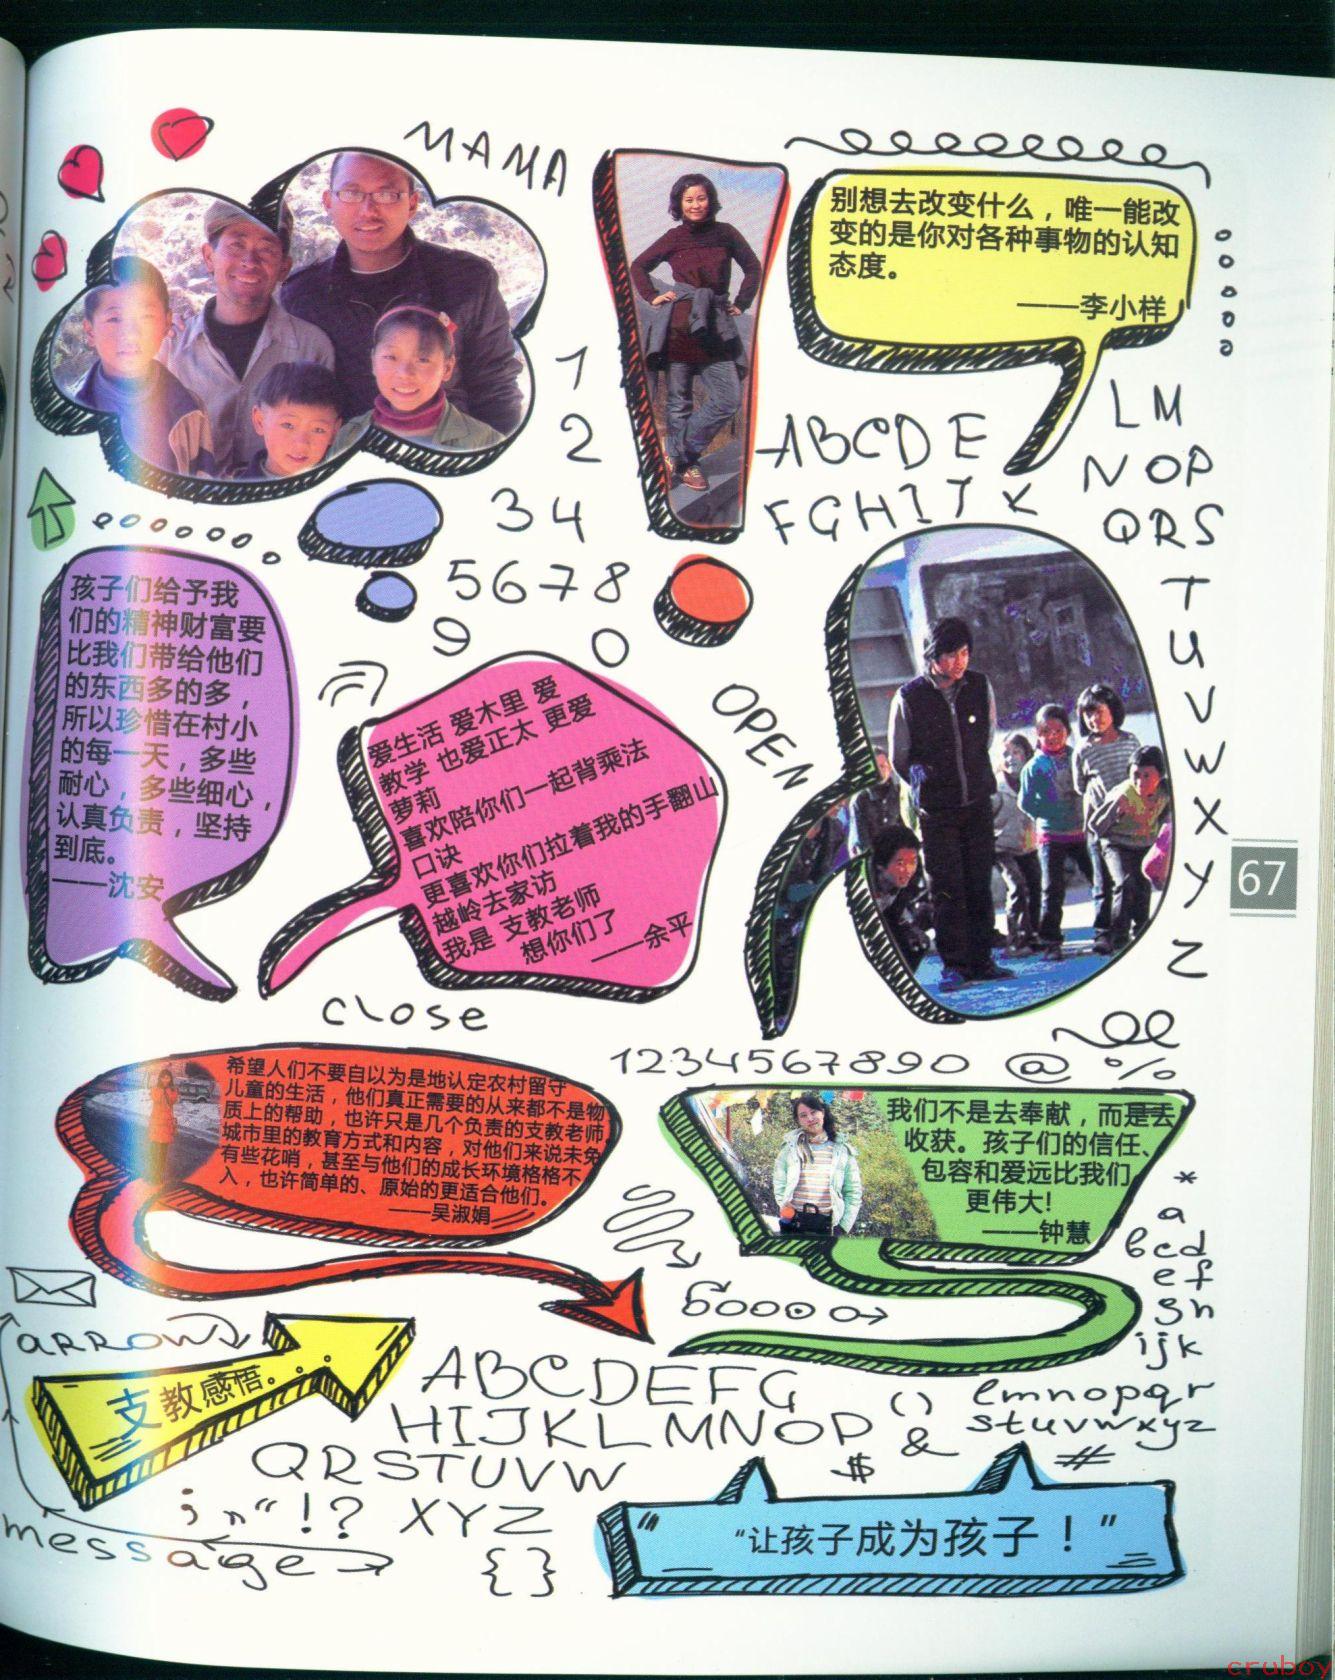 MAMA
别想去改变什么，唯一能改
变的是你对各种事物的认知
态度。
——李小样
1
2
3 4
5 6 7 8
9 0
ABCDE
FGHIJK
LM
NOP
QRS
T
U
V
W
X
Y
Z
孩子们给予我
们的精神财富要
比我们带给他们
的东西多的多，
所以珍惜在村小
的每一天，多些
耐心，多些细心，
认真负责，坚持
到底。
——沈安
爱生活 爱木里 爱
教学 也爱正太 更爱
萝莉
喜欢陪你们一起背乘法
口诀
更喜欢你们拉着我的手翻山
越岭去家访
我是 支教老师
想你们了
——余平
OPEN
close
67
1234567890 @ %
希望人们不要自以为是地认定农村留守
儿童的生活，他们真正需要的从来都不是物
质上的帮助，也许只是几个负责的支教老师
城市里的教育方式和内容，对他们来说未免
有些花哨，甚至与他们的成长环境格格不
入，也许简单的、原始的更适合他们。
——吴淑娟
我们不是去奉献，而是去
收获。孩子们的信任、
包容和爱远比我们
更伟大！
——钟慧
*
a
bcd
ef
gh
ijk
lmnopqr
stuvwxyz
arrow
支教感悟。。。
ABCDEFG
HIJKLMNOP
QRSTUVW
XYZ
; „ “ ! ?
{ }
( )
&
$
#
message
“让孩子成为孩子！”
cruboy